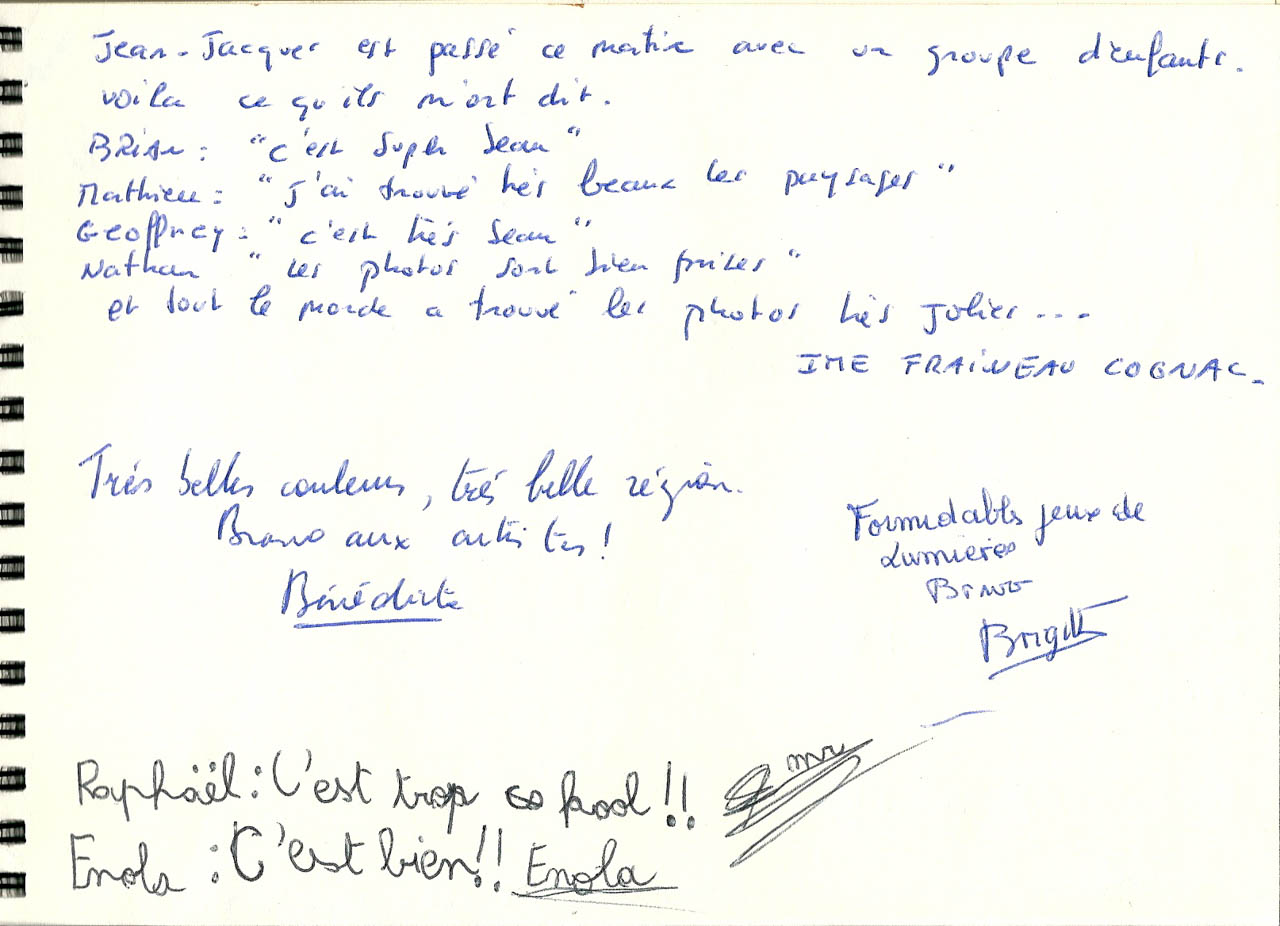 Jean-Jacques est passé ce matin avec un groupe d'enfants.
voila ce qu'ils m'ont dit.
BRian : "c'est super beau"
Mathieu : "J'ai trouvé très beaux les paysages"
Geoffrey : "c'est très beau"
Nathan "les photos sont bien prises"
et tout le monde a trouvé les photos très jolies...
IME FRAiNEAU COGNAC.
Trés belles couleurs, trés belle région.
Bravo aux artistes !
Bénédicte
Formidables jeux de
Lumieres
Bravo
Brigitte
Raphäël : C'est trop kool !!
Enola : C'est bien !! Enola